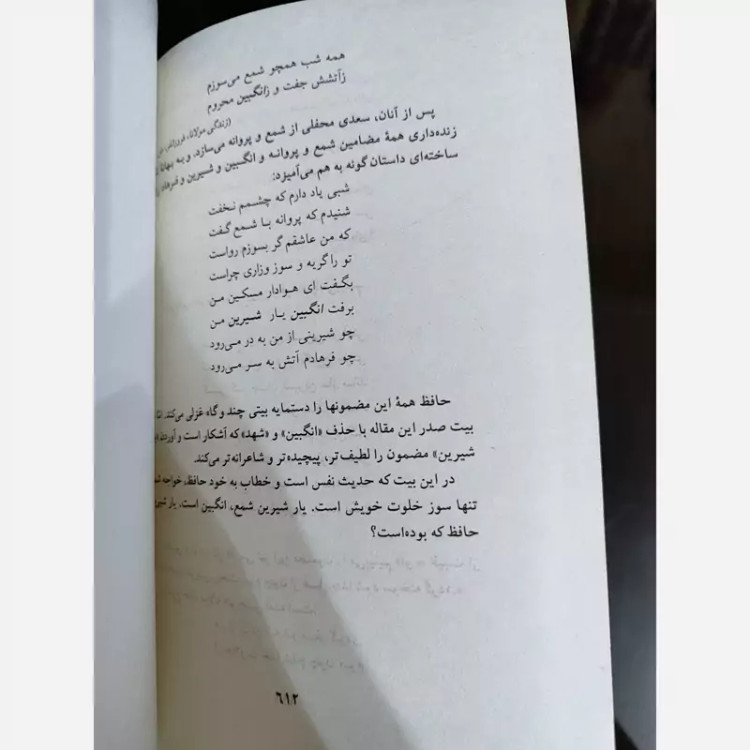 همه شب همچو شمع می‌سوزم
زآتشش جفت و زانگبین محروم
(زندگی مولانا، فروزانفر،
پس از آنان، سعدی محفلی از شمع و پروانه می‌سازد. و به بهانهٔ
زنده‌داری همهٔ مضامین شمع و پروانه و انگبین و شیرین و فرهاد
ساخته‌ای داستان گونه به هم می‌آمیزد:
شبی یاد دارم که چشمم نخفت
شنیدم که پروانه با شمع گفت
که من عاشقم گر بسوزم رواست
تو را گریه و سوز وزاری چراست
بگفت ای هوادار مسکین من
برفت انگبین یار شیرین من
چو شیرینی از من به در می‌رود
چو فرهادم آتش به سر می‌رود
حافظ همهٔ این مضمونها را دستمایه بیتی چند و گاه غزلی می‌کند.
بیت صدر این مقاله با حذف «انگبین» و «شهد» که آشکار است و آوردن
شیرین» مضمون را لطیف‌تر، پیچیده‌تر و شاعرانه‌تر می‌کند.
در این بیت که حدیث نفس است و خطاب به خود حافظ، خواجه
تنها سوز خلوت خویش است. یار شیرین شمع، انگبین است. یار
حافظ که بوده‌است؟
۶۱۲